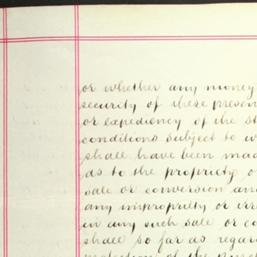 or whether any money
security of these presen
or expediency of the st
conditions subject to w
shall have been mad
as to the propriety o
sale or conversion and
any impropriety or irr
in any such sale or co
shall so far as regar
protection of the purch